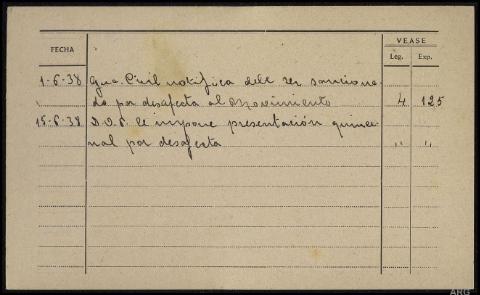 VEASE
FECHA Leg. Exp.
1-6-38 Gua. Civil notifica debe ser sanciona-
da por desafecta al Movimiento 4 125
15-6-38 D.O.P. le impone presentación quince-
nal por desafecta " "
ARG